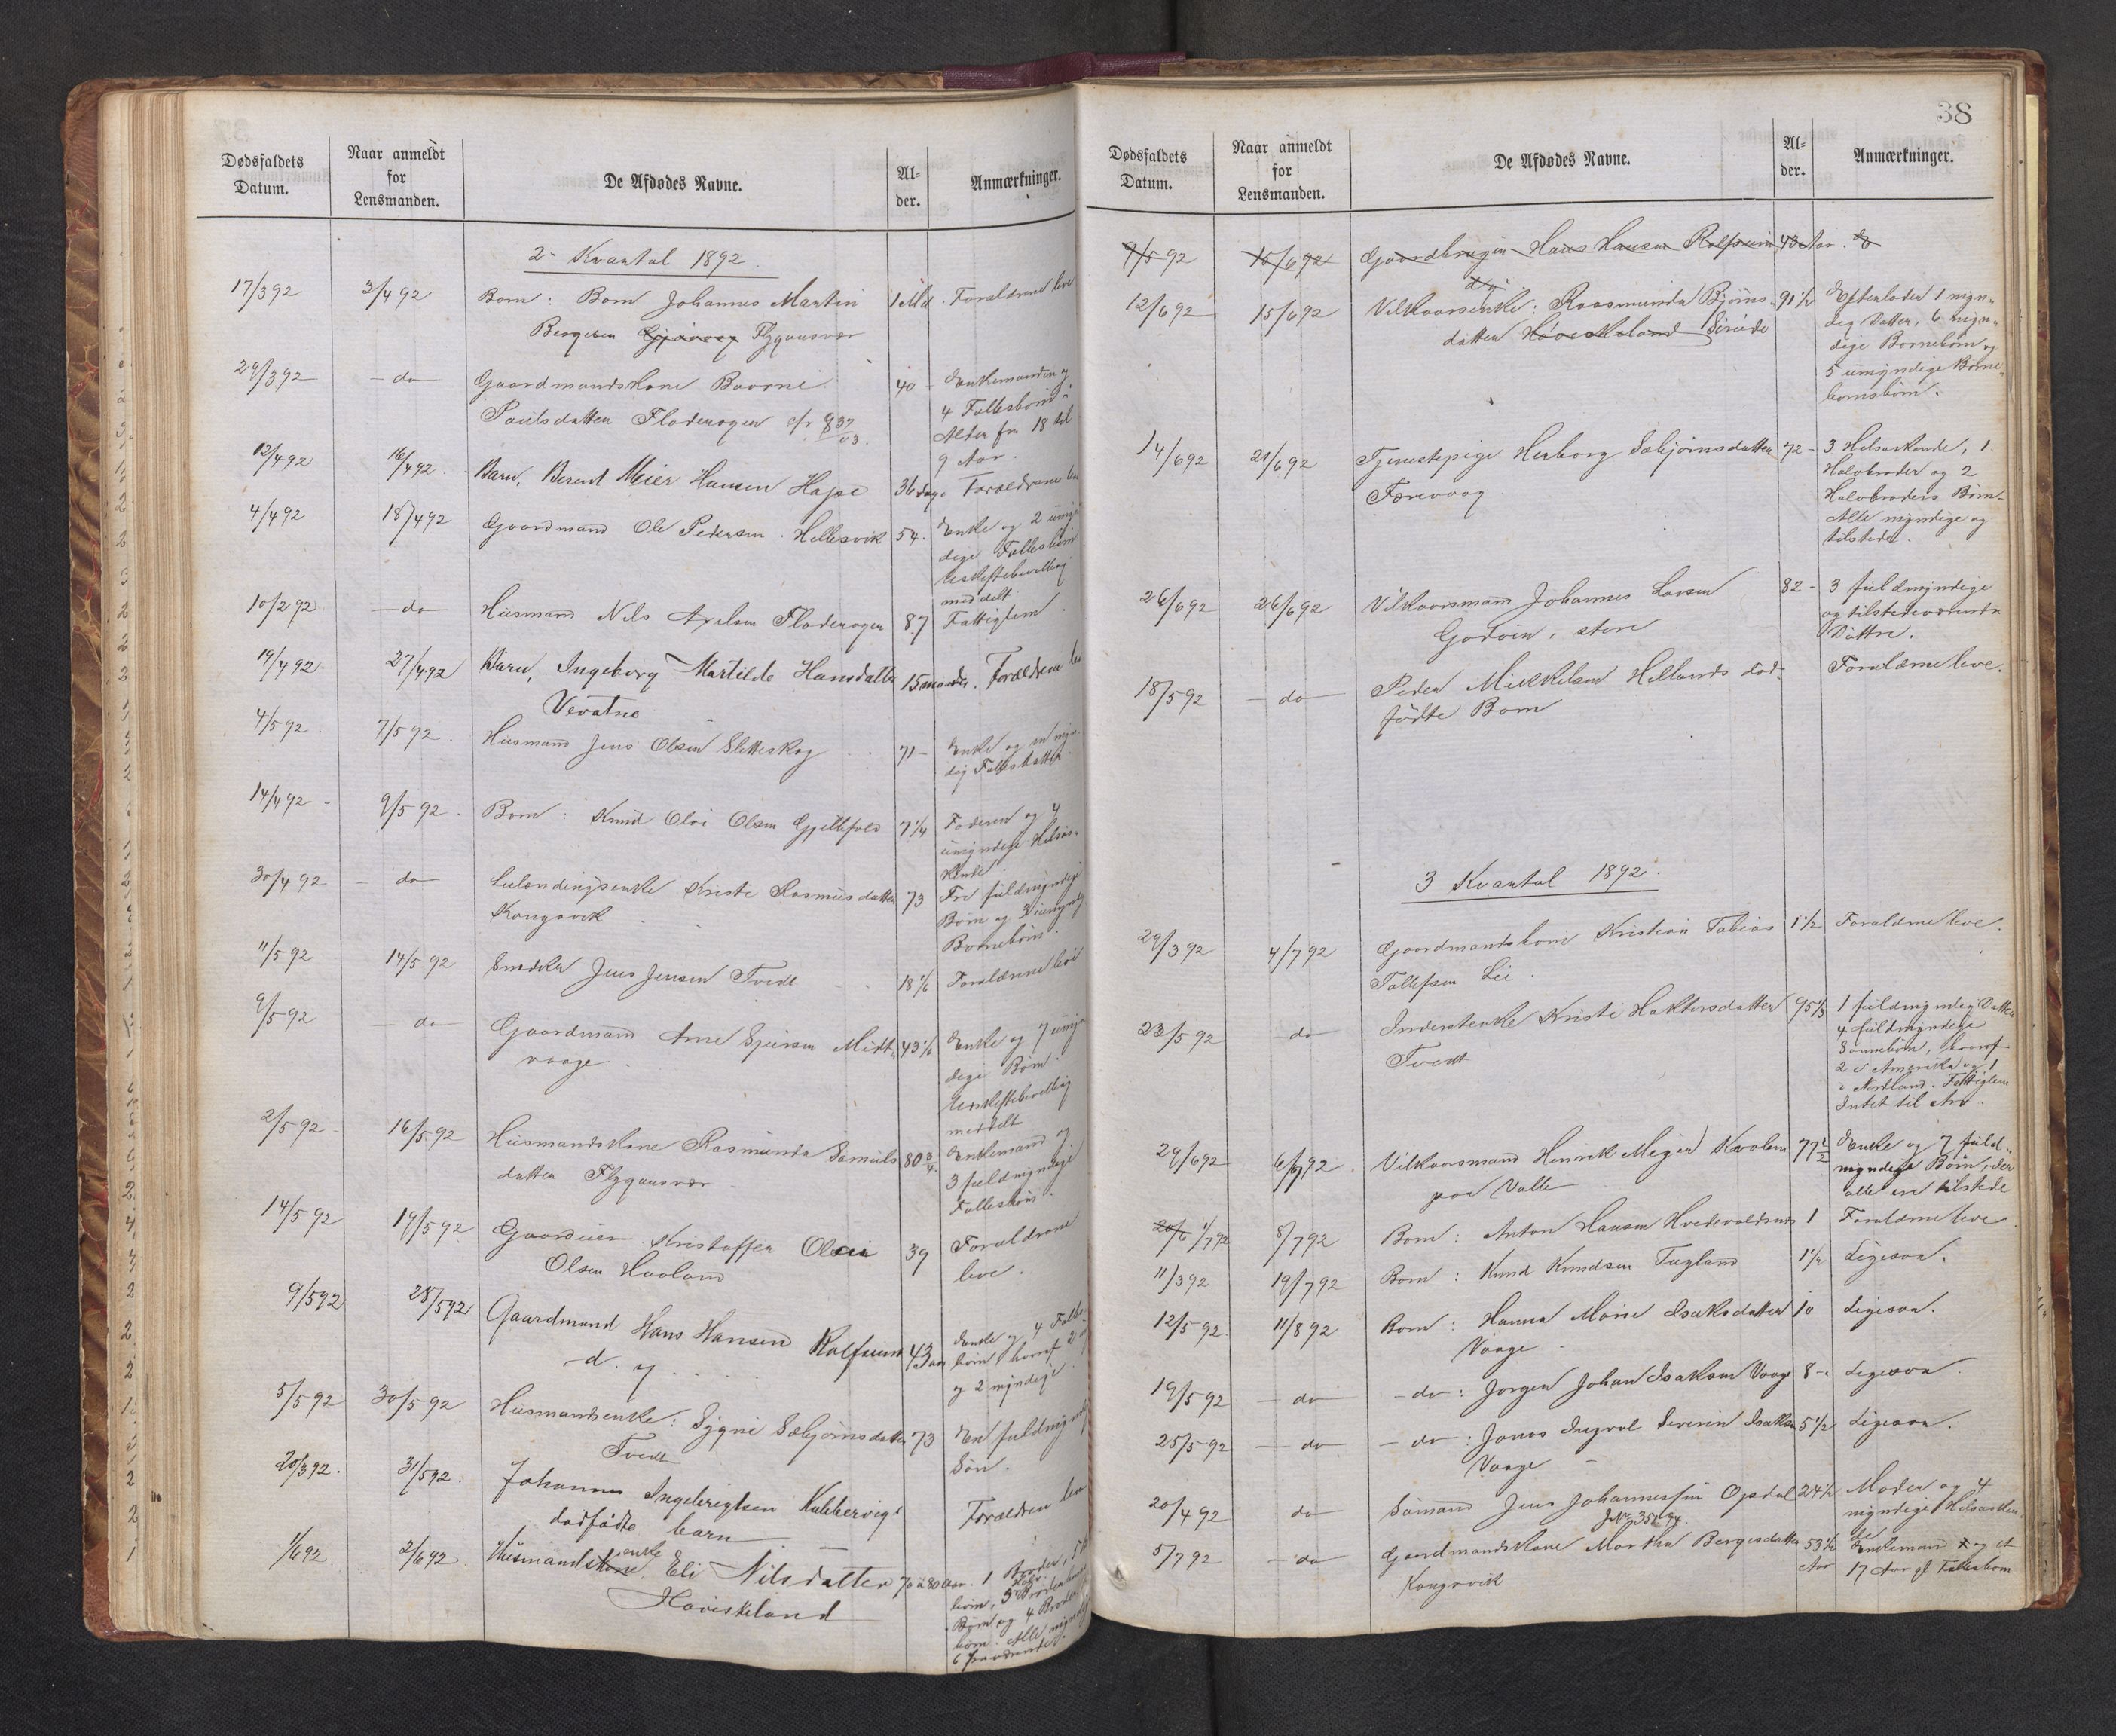 Dødsfaldets Datum. | Naar anmeldt for Lensmanden. | De Afdødes Navne. | Al-der. | Anmærkninger.
2- Kvartal 1892.
17/3 92 | 2/4 92 | Barn: Barn Johannes Martin | 1 Md. | Forældrene leve
Bergesen Flygansvær
29/3 92 | do | Gaardmandskone Baarni | 40 - | Enkemanden og
Paulsdatter Fladerager | 4 Fællesbørn
Alder fra 18 til
9 Aar.
12/4 92 | 16/4 92 | Barn, Berent Meier Hansen Hapse | 36 dage | Forældrene
4/4 92 | 18/4 92 | Gaardmand Ole Pedersen Hellesvik | 54. | Enke og 2 umyn-
dige Fællesbørn
Uskiftebevilling
meddelt
10/2 92 | do | Husmand Nils Axelsen Fladerager | 87 | Fattiglem
19/4 92 | 27/4 92 | Barn, Ingeborg Martilde Hansdatter | 15 maaneder. | Forældrene
Vevatne
4/5 92. | 7/5 92. | Husmand Jens Olsen Sletteskog | 71 - | Enke og en myn-
dig Fællesdatter.
14/4 92 - | 9/5 92 - | Barn: Knud Olai Olsen Gjellefald | 7 1/4 | Faderen og 4
umyndige Helsøs-
kende.
30/4 92 | do | Selveier­ Kristi Rasmusdatter | 73 | Tre fuldmyndige
Kongsvik | Børn og 3 umyndige
Børnebørn.
11/5 92 | 14/5 92 | Snedker Jens Jensen Tvedt | 18 1/6 | Forældrene leve
9/5 92 | do | Gaardmand Arne Sjursen Midt- | 43 1/6 | Enke og 7 umyn-
vaage | dige Børn
Uskiftebevilling
meddelt
2/5 92 - | 16/5 92 | Husmandskone Rasmunda Samuels- | 80 3/4 | Enkemand og
datter Flygansvær | 3 fuldmyndige
Fællesbørn.
14/5 92 | 19/5 92 | Gaardeier Kristoffer Olai | 39 | Forældrene
Olsen Haaland | leve.
9/5 92 | 28/5 92 | Gaardmand Hans Hansen Rolfsund | 43 aar | Enke og 4 Fælles-
d. y. | børn hvoraf 2
og 2 myndige
5/5 92 | 30/5 92 | Husmandsenke: Sygni Sæbjørnsdatter | 73 | En fuldmyndig
Tvedt | Søn.
20/3 92. | 31/5 92. | Johannes Ingebrigtsen Kubbervigs | Forældrene
dødfødte barn
1/6 92. | 2/6 92. | Husmandsenke Eli Nilsdatter | 70 a 80 Aar. | 1 Broder,
Høviskeland | børn, 3 Broder
Børn og 4 Broder
børn. Alle myndige
6 fraværende.
38
Dødsfaldets Datum. | Naar anmeldt for Lensmanden. | De Afdødes Navne. | Al-der. | Anmærkninger.
9/5 92 | 15/6 92 | Gaardbruger Hans Hansen Rolfsund | 43 Aar.
d y
12/6 92 | 15/6 92 | Vilkaarsenke: Rasmunda Bjørns- | 91 1/2 | Efterlader 1 myn-
datter Høviskeland Søreide | dig Datter, 6 myn-
dige Børnebørn og
5 umyndige Børne-
børnsbørn.
14/6 92 | 21/6 92 | Tjenestepige Herborg Sæbjørnsdatter | 72 - | 3 Helsøskende, 1
Færevaag | Halvbroder og 2
Halvbroders Børn
Alle myndige og
tilstede.
26/6 92 | 26/6 92 | Vilkaarsmand Johannes Larsen | 82 - | 3 fuldmyndige
Godøen, store | og tilstedeværende
Døttre.
18/5 92 | do | Peder Mikkelsen Hellands død- | Forældrene leve.
fødte Barn
3 Kvartal 1892.
29/3 92 | 4/7 92 | Gaardmandsbarn Kristian Tobias | 1 1/2 | Forældrene leve.
Tollefsen Lie
23/5 92 | do | Inderstenke Kristi Haktorsdatter | 95 1/3 | 1 fuldmyndig Datter
Tvedt | 4 fuldmyndige
Sønnebørn, hvoraf
2 i Amerika og 1
i Nordland. Fattiglem
Intet til Arv.
29/6 92 | 6/7 92. | Vilkaarsmand Henrik Meyer Kvalem | 77 1/2 | Enke og 7 fuld-
paa Valle | myndige Børn, der
alle ere tilstede
20/6 1/7 92 | 8/7 92 | Barn: Anton Hansen Hvedevoldsnes | 1 | Forældrene leve
11/3 92 | 19/7 92 | Barn: Knud Knudsen Tugland | 1 1/2 | Ligesaa.
12/5 92. | 11/8 92 | Barn: Hanna Marie Isaksdatter | 10 | Ligesaa.
Vaage
19/5 92 | do | - do: Jørgen Johan Isaksen Vaage | 8 - | Ligesaa
25/5 92 | do | - do: Jonas Ingval Severin Isaksen | 5 1/2 | Ligesaa.
Vaage -
20/4 92 | do | Sømand Jens Johannessen Opdal | 24 1/2 | Moder og 4
myndige Helsøsken-
de
5/7 92 | do | Gaardmandskone Martha Bergesdatter | 53 1/2 | Enkemand og et
Kongsvik | Aar | 17 Aar gl. Fællesbarn